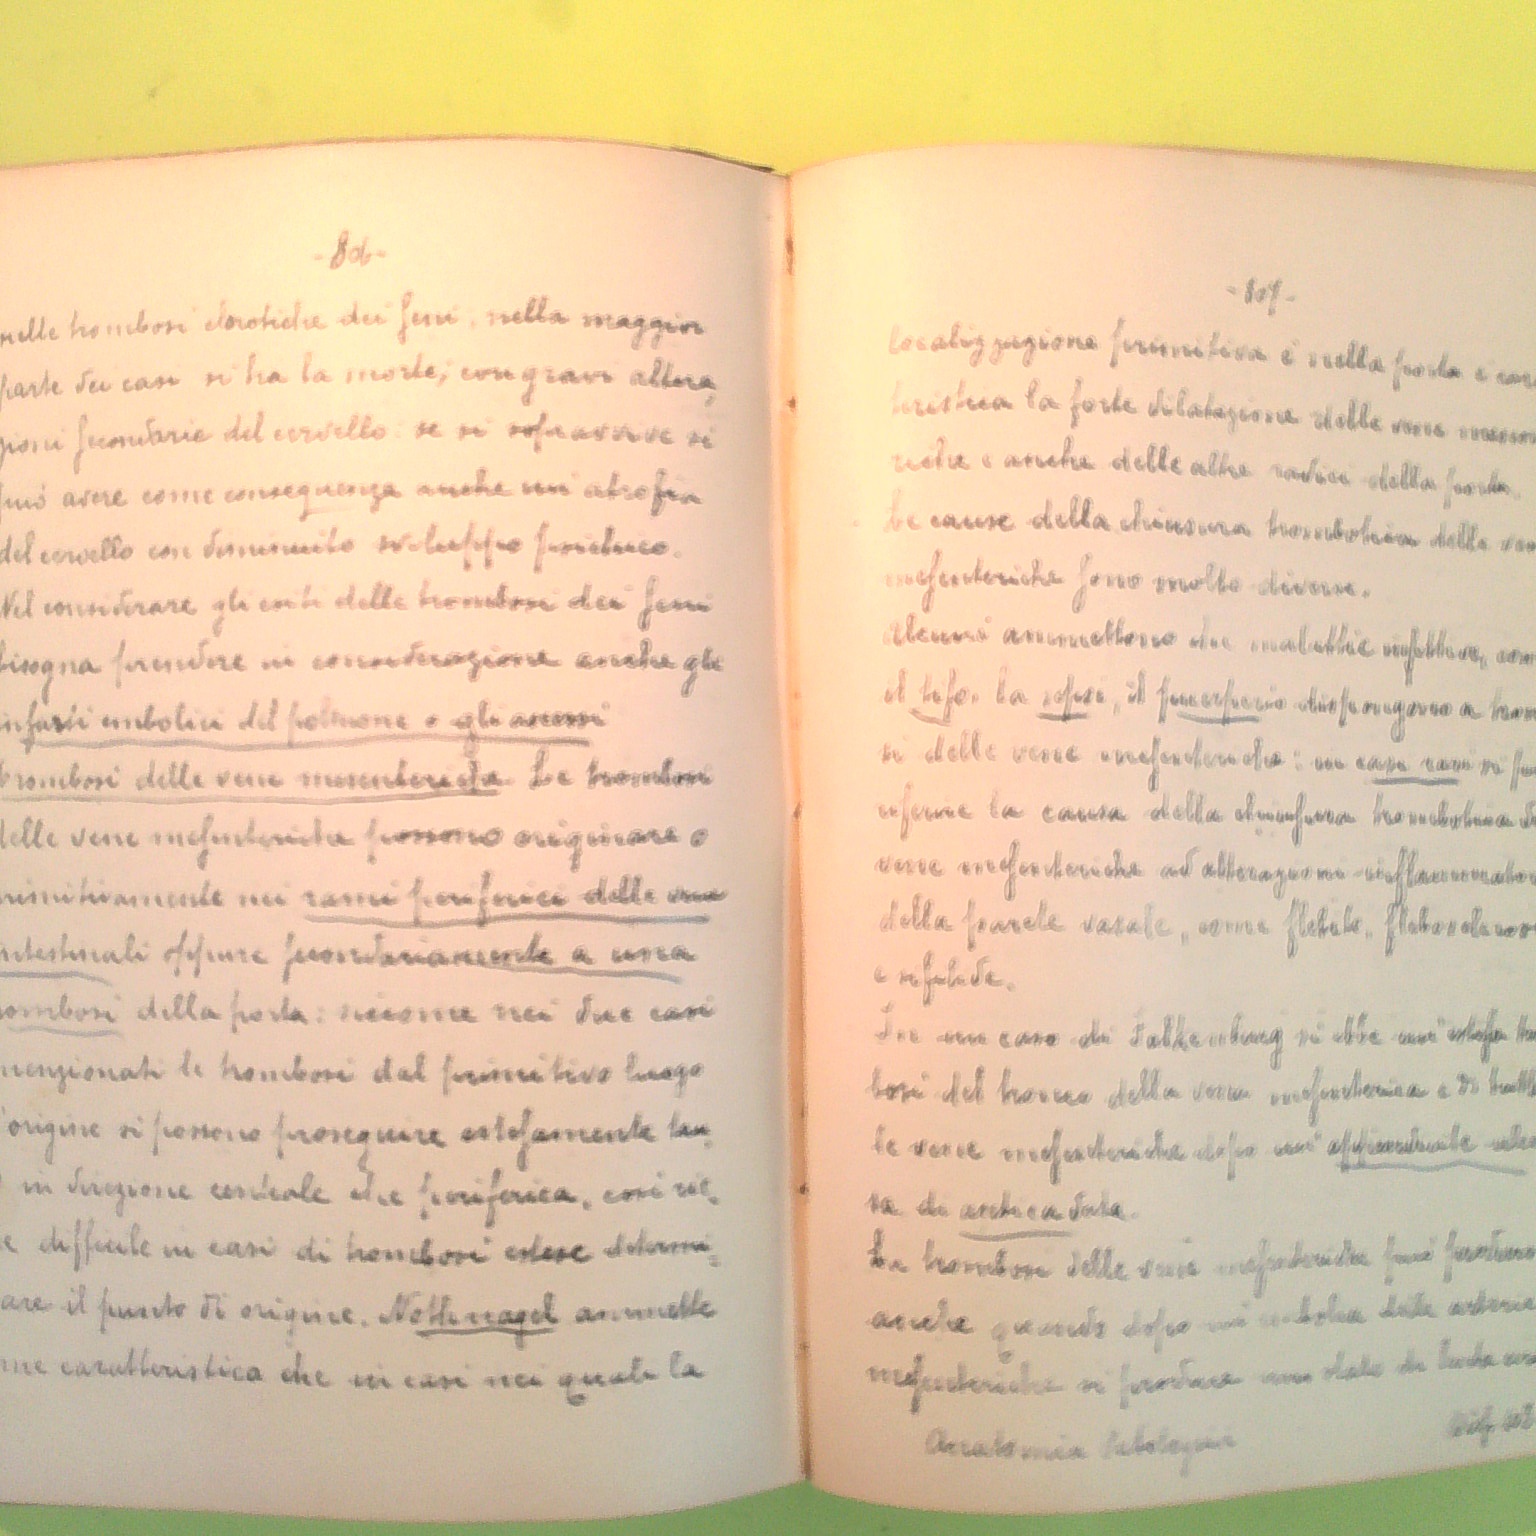 -806-
nelle trombosi clorotiche dei seni; nella maggior
parte dei casi si ha la morte, con gravi altera,
zioni secondarie del cervello: se si sopravvive si
può avere come conseguenza anche un'atrofia
del cervello con diminuito sviluppo psichico.
Nel considerare gli esiti delle trombosi dei seni
bisogna prendere in considerazione anche gli
infarti embolici del polmone o gli ascessi
trombosi delle vene mesenteriche. Le trombosi
delle vene mesenteriche possono originare o
primitivamente nei rami periferici delle vene
intestinali oppure secondariamente a una
trombosi della porta: siccome nei due casi
menzionati le trombosi dal primitivo luogo
d'origine si possono proseguire estesamente tan,
in direzione centrale che periferica, così rie,
difficile in casi di trombosi estese determi=
are il punto di origine. Nothnagel ammette
me caratteristica che in casi nei quali la
-807-
localizzazione primitiva è nella porta è carat
teristica la forte dilatazione delle vene mesen
teriche e anche delle altre radici della porta.
Le cause della chiusura trombotica delle vene
mesenteriche sono molto diverse.
Alcuni ammettono che malattie infettive, come
il tifo, la sepsi, il puerperio dispongono a trom
si delle vene mesenteriche: in casi rari si può
riferire la causa della chiusura trombotica
vene mesenteriche ad alterazioni infiammator
della parete vasale, come flebite, flebosclerosi
e sifilide.
In un caso di Falkenburg si ebbe un'estesa trom
bosi del tronco della vena mesenterica e di tutte
le vene mesenteriche dopo un'appendicite ulcero
sa di antica data.
La trombosi delle vene mesenteriche può prodursi
anche quando dopo un'embolia delle arterie
mesenteriche si produce uno stato di
Anatomia Patologia